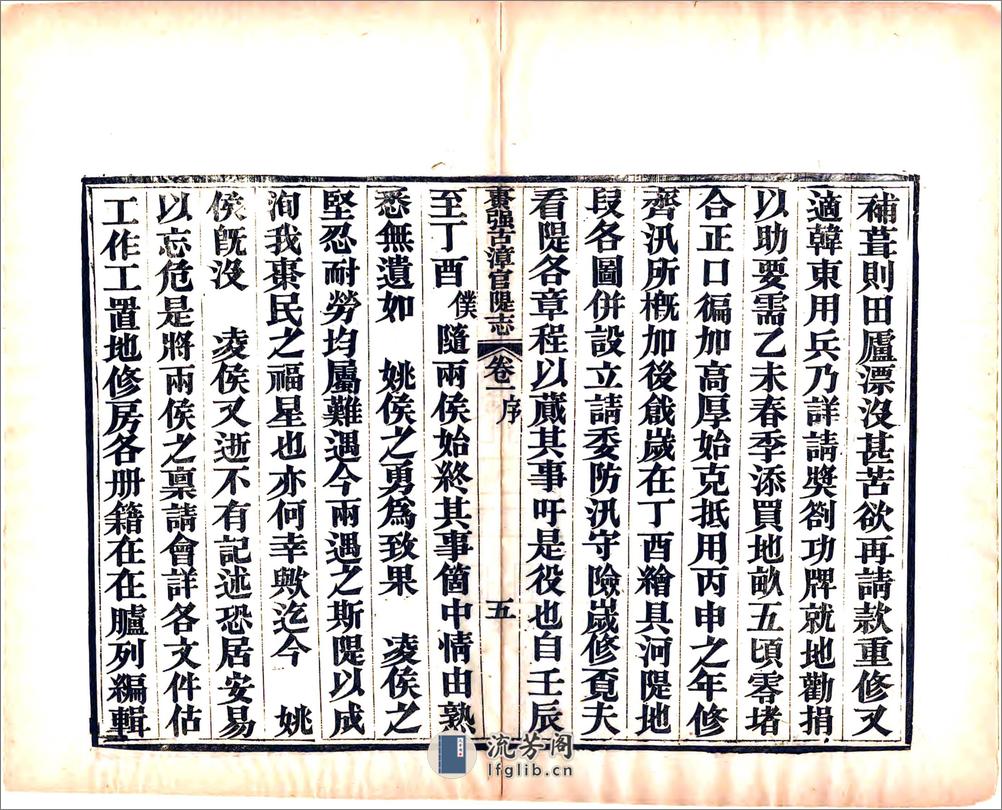 補葺則田廬漂沒甚苦欲再請款重修又
適韓東用兵乃詳請獎劄功牌就地勸捐
以助要需乙未春季添買地畝五頃零堵
合正口徧加高厚始克抵用丙申之年修
齊汛所槪加後戧歲在丁酉繪具河隄地
段各圖併設立請委防汛守險歲修覓夫
看隄各章程以蕆其事吁是役也自壬辰
棗强古漳官隄志 卷一 序 五
至丁酉僕隨兩侯始終其事箇中情由熟
悉無遺如 姚侯之勇為致果 凌侯之
堅忍耐勞均屬難遇今兩遇之斯隄以成
洵我棗民之福星也亦何幸歟迄今 姚
侯旣沒 凌侯又逝不有記述恐居安易
以忘危是將兩侯之稟請會詳各文件估
工作工置地修房各册籍在在臚列編輯
流芳阁
lfglib.cn